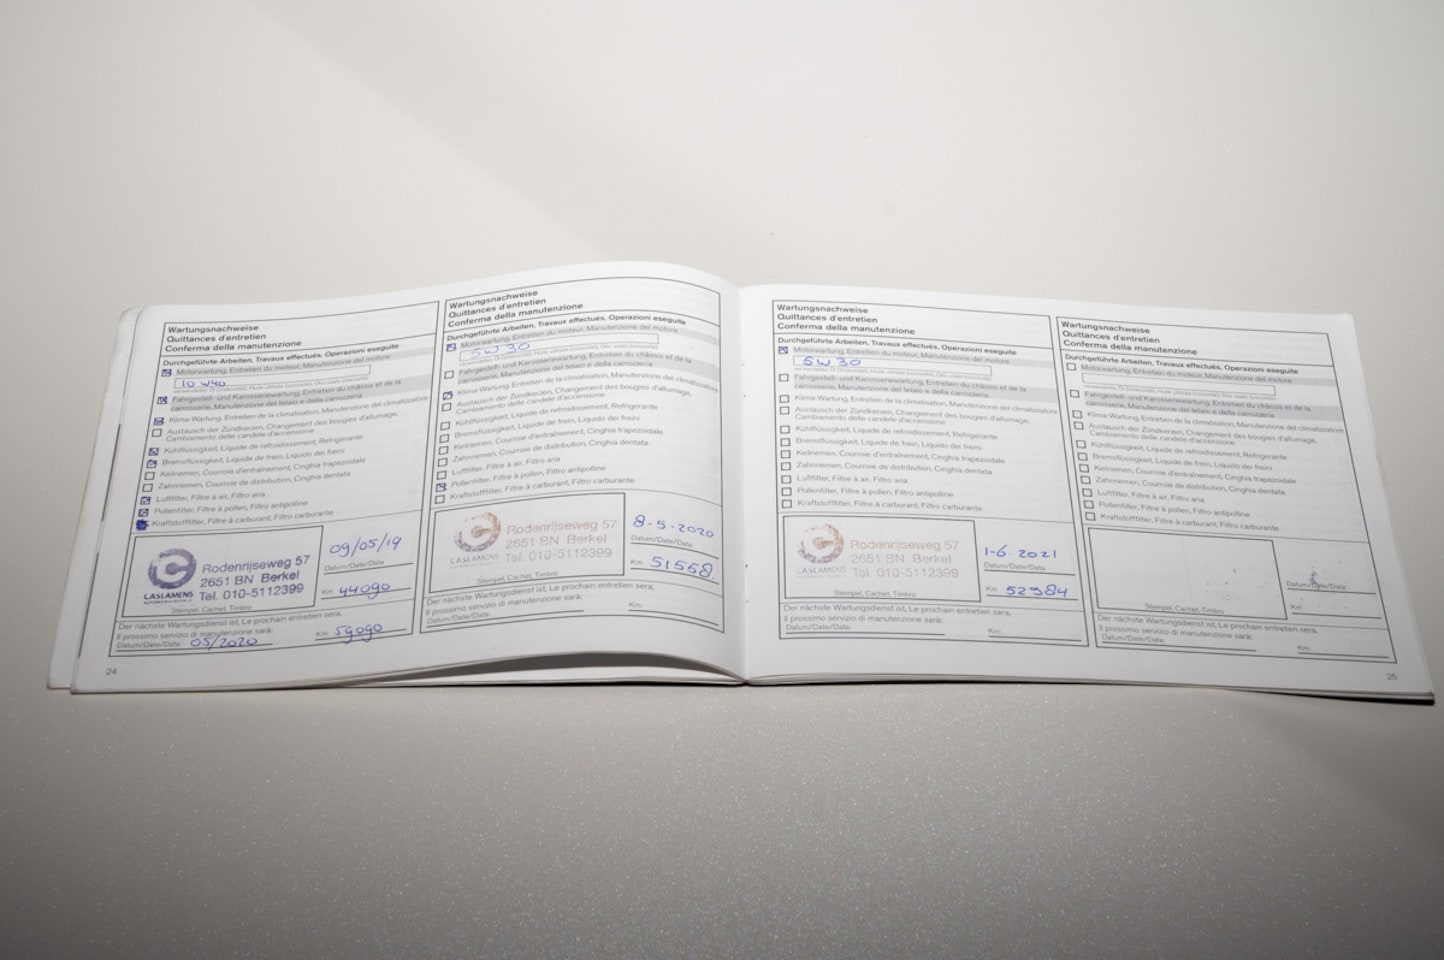 Wartungsnachweise
Quittances d'entretien
Conferma della manutenzione
Durchgeführte Arbeiten, Travaux effectués, Operazioni eseguite
Motorwartung, Entretien du moteur, Manutenzione del motore
10 W40
verwendetes Öl (Viskosität), Huile utilisée (viscosité), Olio usato (viscosità)
Fahrgestell- und Karosseriewartung, Entretien du châssis et de la
carrosserie, Manutenzione del telaio e della carrozzeria
Klima-Wartung, Entretien de la climatisation, Manutenzione del climatizzatore
Austausch der Zündkerzen, Changement des bougies d'allumage,
Cambiamento delle candele d'accensione
Kühlflüssigkeit, Liquide de refroidissement, Refrigerante
Bremsflüssigkeit, Liquide de frein, Liquido dei freni
Keilriemen, Courroie d'entraînement, Cinghia trapezoidale
Zahnriemen, Courroie de distribution, Cinghia dentata
Luftfilter, Filtre à air, Filtro aria
Pollenfilter, Filtre à pollen, Filtro antipolline
Kraftstofffilter, Filtre à carburant, Filtro carburante
Rodenrijseweg 57
2651 BN Berkel
Tel. 010-5112399
CASLAMENS
Stempel, Cachet, Timbro
09/05/19
Datum/Date/Data
Km 44090
Der nächste Wartungsdienst ist, Le prochain entretien sera,
Il prossimo servizio di manutenzione sarà:
Datum/Date/Data: 05/2020 Km: 59090
24
Wartungsnachweise
Quittances d'entretien
Conferma della manutenzione
Durchgeführte Arbeiten, Travaux effectués, Operazioni eseguite
Motorwartung, Entretien du moteur, Manutenzione del motore
5W30
verwendetes Öl (Viskosität), Huile utilisée (viscosité), Olio usato (viscosità)
Fahrgestell- und Karosseriewartung, Entretien du châssis et de la
carrosserie, Manutenzione del telaio e della carrozzeria
Klima-Wartung, Entretien de la climatisation, Manutenzione del climatizzatore
Austausch der Zündkerzen, Changement des bougies d'allumage,
Cambiamento delle candele d'accensione
Kühlflüssigkeit, Liquide de refroidissement, Refrigerante
Bremsflüssigkeit, Liquide de frein, Liquido dei freni
Keilriemen, Courroie d'entraînement, Cinghia trapezoidale
Zahnriemen, Courroie de distribution, Cinghia dentata
Luftfilter, Filtre à air, Filtro aria
Pollenfilter, Filtre à pollen, Filtro antipolline
Kraftstofffilter, Filtre à carburant, Filtro carburante
Rodenrijseweg 57
2651 BN Berkel
Tel. 010-5112399
CASLAMENS
Stempel, Cachet, Timbro
8-5-2020
Datum/Date/Data
Km 51558
Der nächste Wartungsdienst ist, Le prochain entretien sera,
Il prossimo servizio di manutenzione sarà:
Datum/Date/Data: Km:
Wartungsnachweise
Quittances d'entretien
Conferma della manutenzione
Durchgeführte Arbeiten, Travaux effectués, Operazioni eseguite
Motorwartung, Entretien du moteur, Manutenzione del motore
5W30
verwendetes Öl (Viskosität), Huile utilisée (viscosité), Olio usato (viscosità)
Fahrgestell- und Karosseriewartung, Entretien du châssis et de la
carrosserie, Manutenzione del telaio e della carrozzeria
Klima-Wartung, Entretien de la climatisation, Manutenzione del climatizzatore
Austausch der Zündkerzen, Changement des bougies d'allumage,
Cambiamento delle candele d'accensione
Kühlflüssigkeit, Liquide de refroidissement, Refrigerante
Bremsflüssigkeit, Liquide de frein, Liquido dei freni
Keilriemen, Courroie d'entraînement, Cinghia trapezoidale
Zahnriemen, Courroie de distribution, Cinghia dentata
Luftfilter, Filtre à air, Filtro aria
Pollenfilter, Filtre à pollen, Filtro antipolline
Kraftstofffilter, Filtre à carburant, Filtro carburante
Rodenrijseweg 57
2651 BN Berkel
Tel. 010-5112399
CASLAMENS
Stempel, Cachet, Timbro
1-6-2021
Datum/Date/Data
Km 52984
Der nächste Wartungsdienst ist, Le prochain entretien sera,
Il prossimo servizio di manutenzione sarà:
Datum/Date/Data: Km:
Wartungsnachweise
Quittances d'entretien
Conferma della manutenzione
Durchgeführte Arbeiten, Travaux effectués, Operazioni eseguite
Motorwartung, Entretien du moteur, Manutenzione del motore
verwendetes Öl (Viskosität), Huile utilisée (viscosité), Olio usato (viscosità)
Fahrgestell- und Karosseriewartung, Entretien du châssis et de la
carrosserie, Manutenzione del telaio e della carrozzeria
Klima-Wartung, Entretien de la climatisation, Manutenzione del climatizzatore
Austausch der Zündkerzen, Changement des bougies d'allumage,
Cambiamento delle candele d'accensione
Kühlflüssigkeit, Liquide de refroidissement, Refrigerante
Bremsflüssigkeit, Liquide de frein, Liquido dei freni
Keilriemen, Courroie d'entraînement, Cinghia trapezoidale
Zahnriemen, Courroie de distribution, Cinghia dentata
Luftfilter, Filtre à air, Filtro aria
Pollenfilter, Filtre à pollen, Filtro antipolline
Kraftstofffilter, Filtre à carburant, Filtro carburante
Stempel, Cachet, Timbro
Datum/Date/Data
Km
Der nächste Wartungsdienst ist, Le prochain entretien sera,
Il prossimo servizio di manutenzione sarà:
Datum/Date/Data: Km:
25